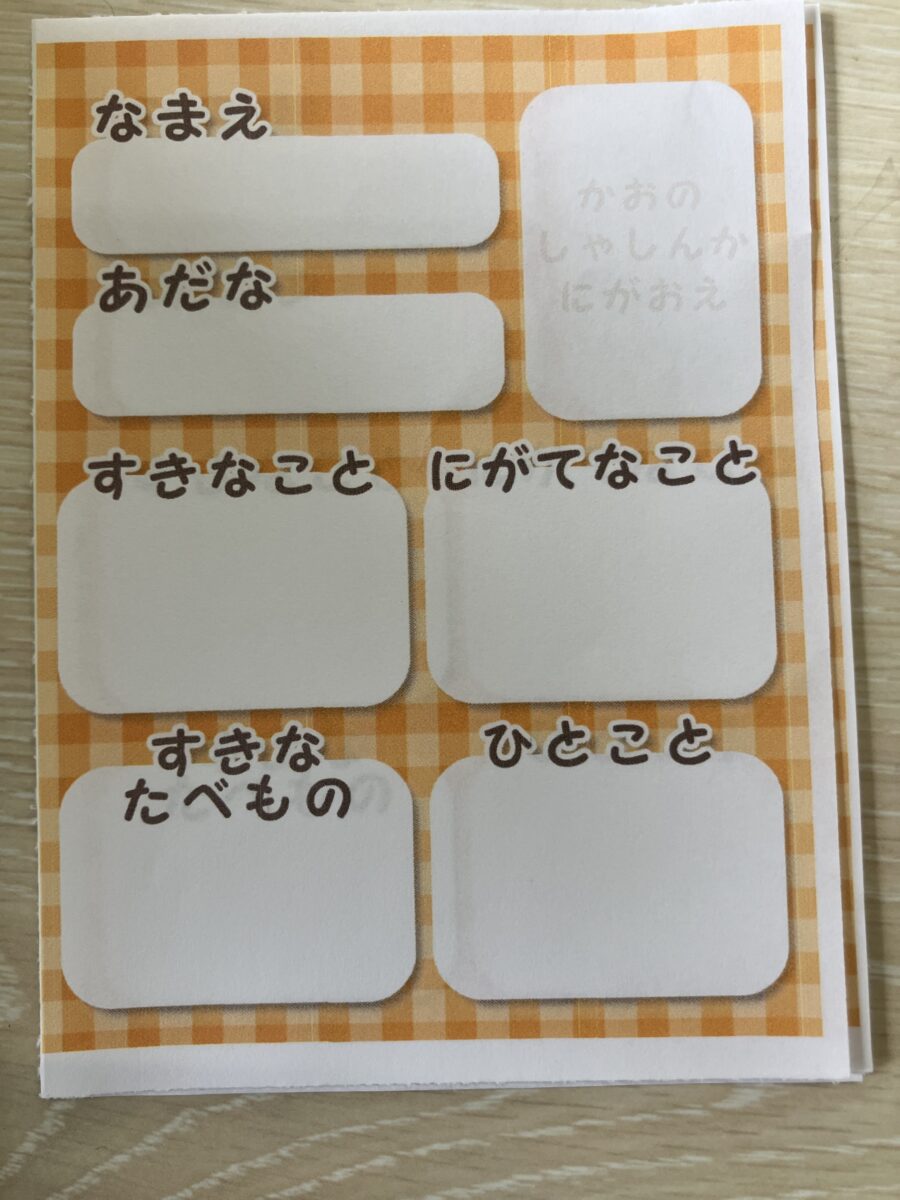 なまえ
かおの
しゃしんか
にがおえ
あだな
すきなこと
にがてなこと
すきな
たべもの
ひとこと